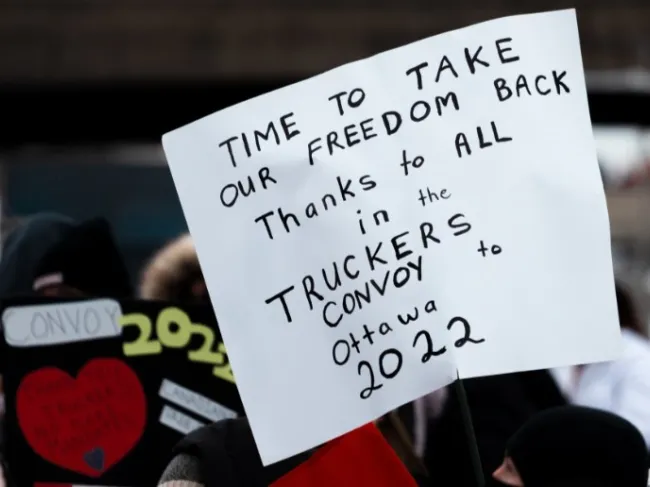 TIME TO TAKE
OUR FREEDOM BACK
Thanks to ALL
in the
TRUCKERS
CONVOY to
Ottawa
2022
CONVOY
2022